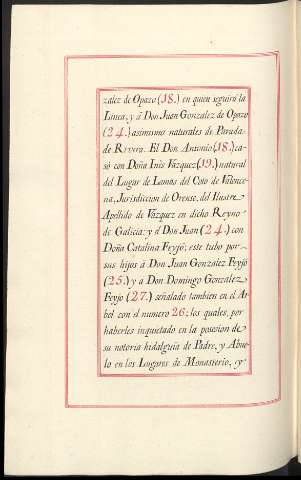 zález de Opazo (18.) en quien seguirá la
Linea, y á Don Juan Gonzalez de Opazo
(24.) asimismo naturales de Parada
de Rivera. El Don Antonio (18.) ca-
só con Doña Inés Vazquez (19.) natural
del Lugar de Lamas del Coto de Valence-
na, Jurisdiccion de Orense, del Ilustre
Apellido de Vazquez en dicho Reyno
de Galicia: y el Don Juan (24.) con
Doña Catalina Feyjó; este tubo por
sus hijos á Don Juan Gonzalez Feyjo
(25.) y á Don Domingo Gonzalez
Feyjo (27.) señalado tambien en el Ar-
bol con el numero 26; los quales, por
haberles inquietado en la posesion de
su notoria hidalguia de Padre, y Abue-
lo en los Lugares de Monasterio, y